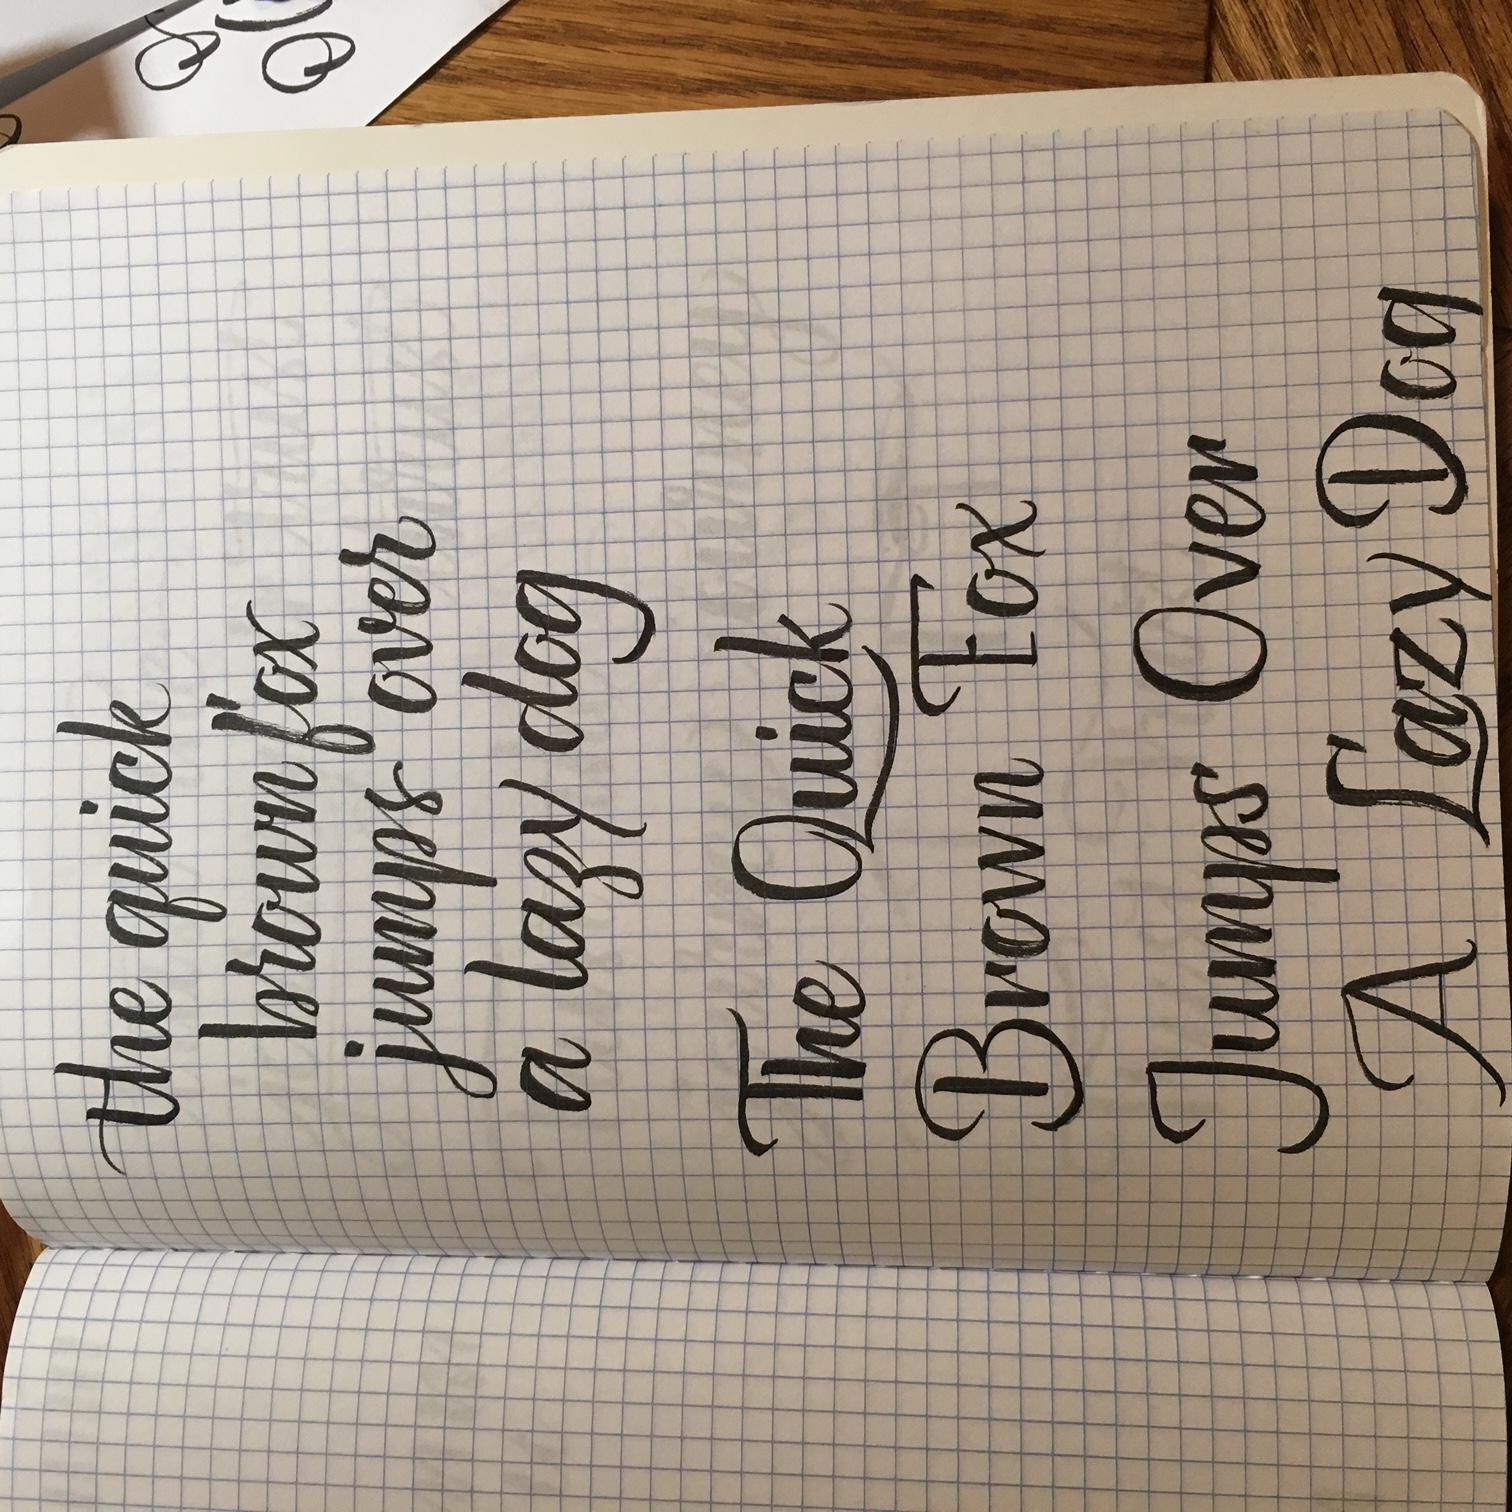 the quick
brown fox
jumps over
a lazy dog
The Quick
Brown Fox
Jumps Over
A Lazy Dog